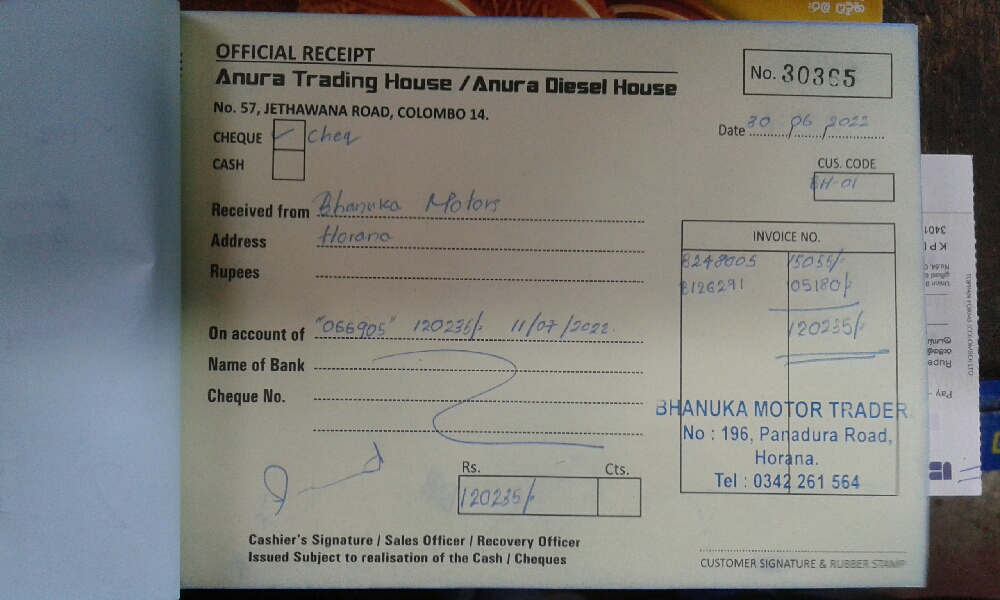 OFFICIAL RECEIPT
Anura Trading House / Anura Diesel House
No. 57, JETHAWANA ROAD, COLOMBO 14.
No. 30365
Date 30/06/2022
CHEQUE ✓ Cheq
CASH
CUS. CODE
BH-01
Received from Bhanuka Motors
Address Horana
Rupees
INVOICE NO.
B248005 15055/-
B126291 105180/-
120235/-
On account of "066905" 120235/- 11/07/2022.
Name of Bank
Cheque No.
BHANUKA MOTOR TRADER
No : 196, Panadura Road,
Horana.
Tel : 0342 261 564
Rs. Cts.
120235/-
Cashier's Signature / Sales Officer / Recovery Officer
Issued Subject to realisation of the Cash / Cheques
CUSTOMER SIGNATURE & RUBBER STAMP
3401
K P
Rupe
Pay